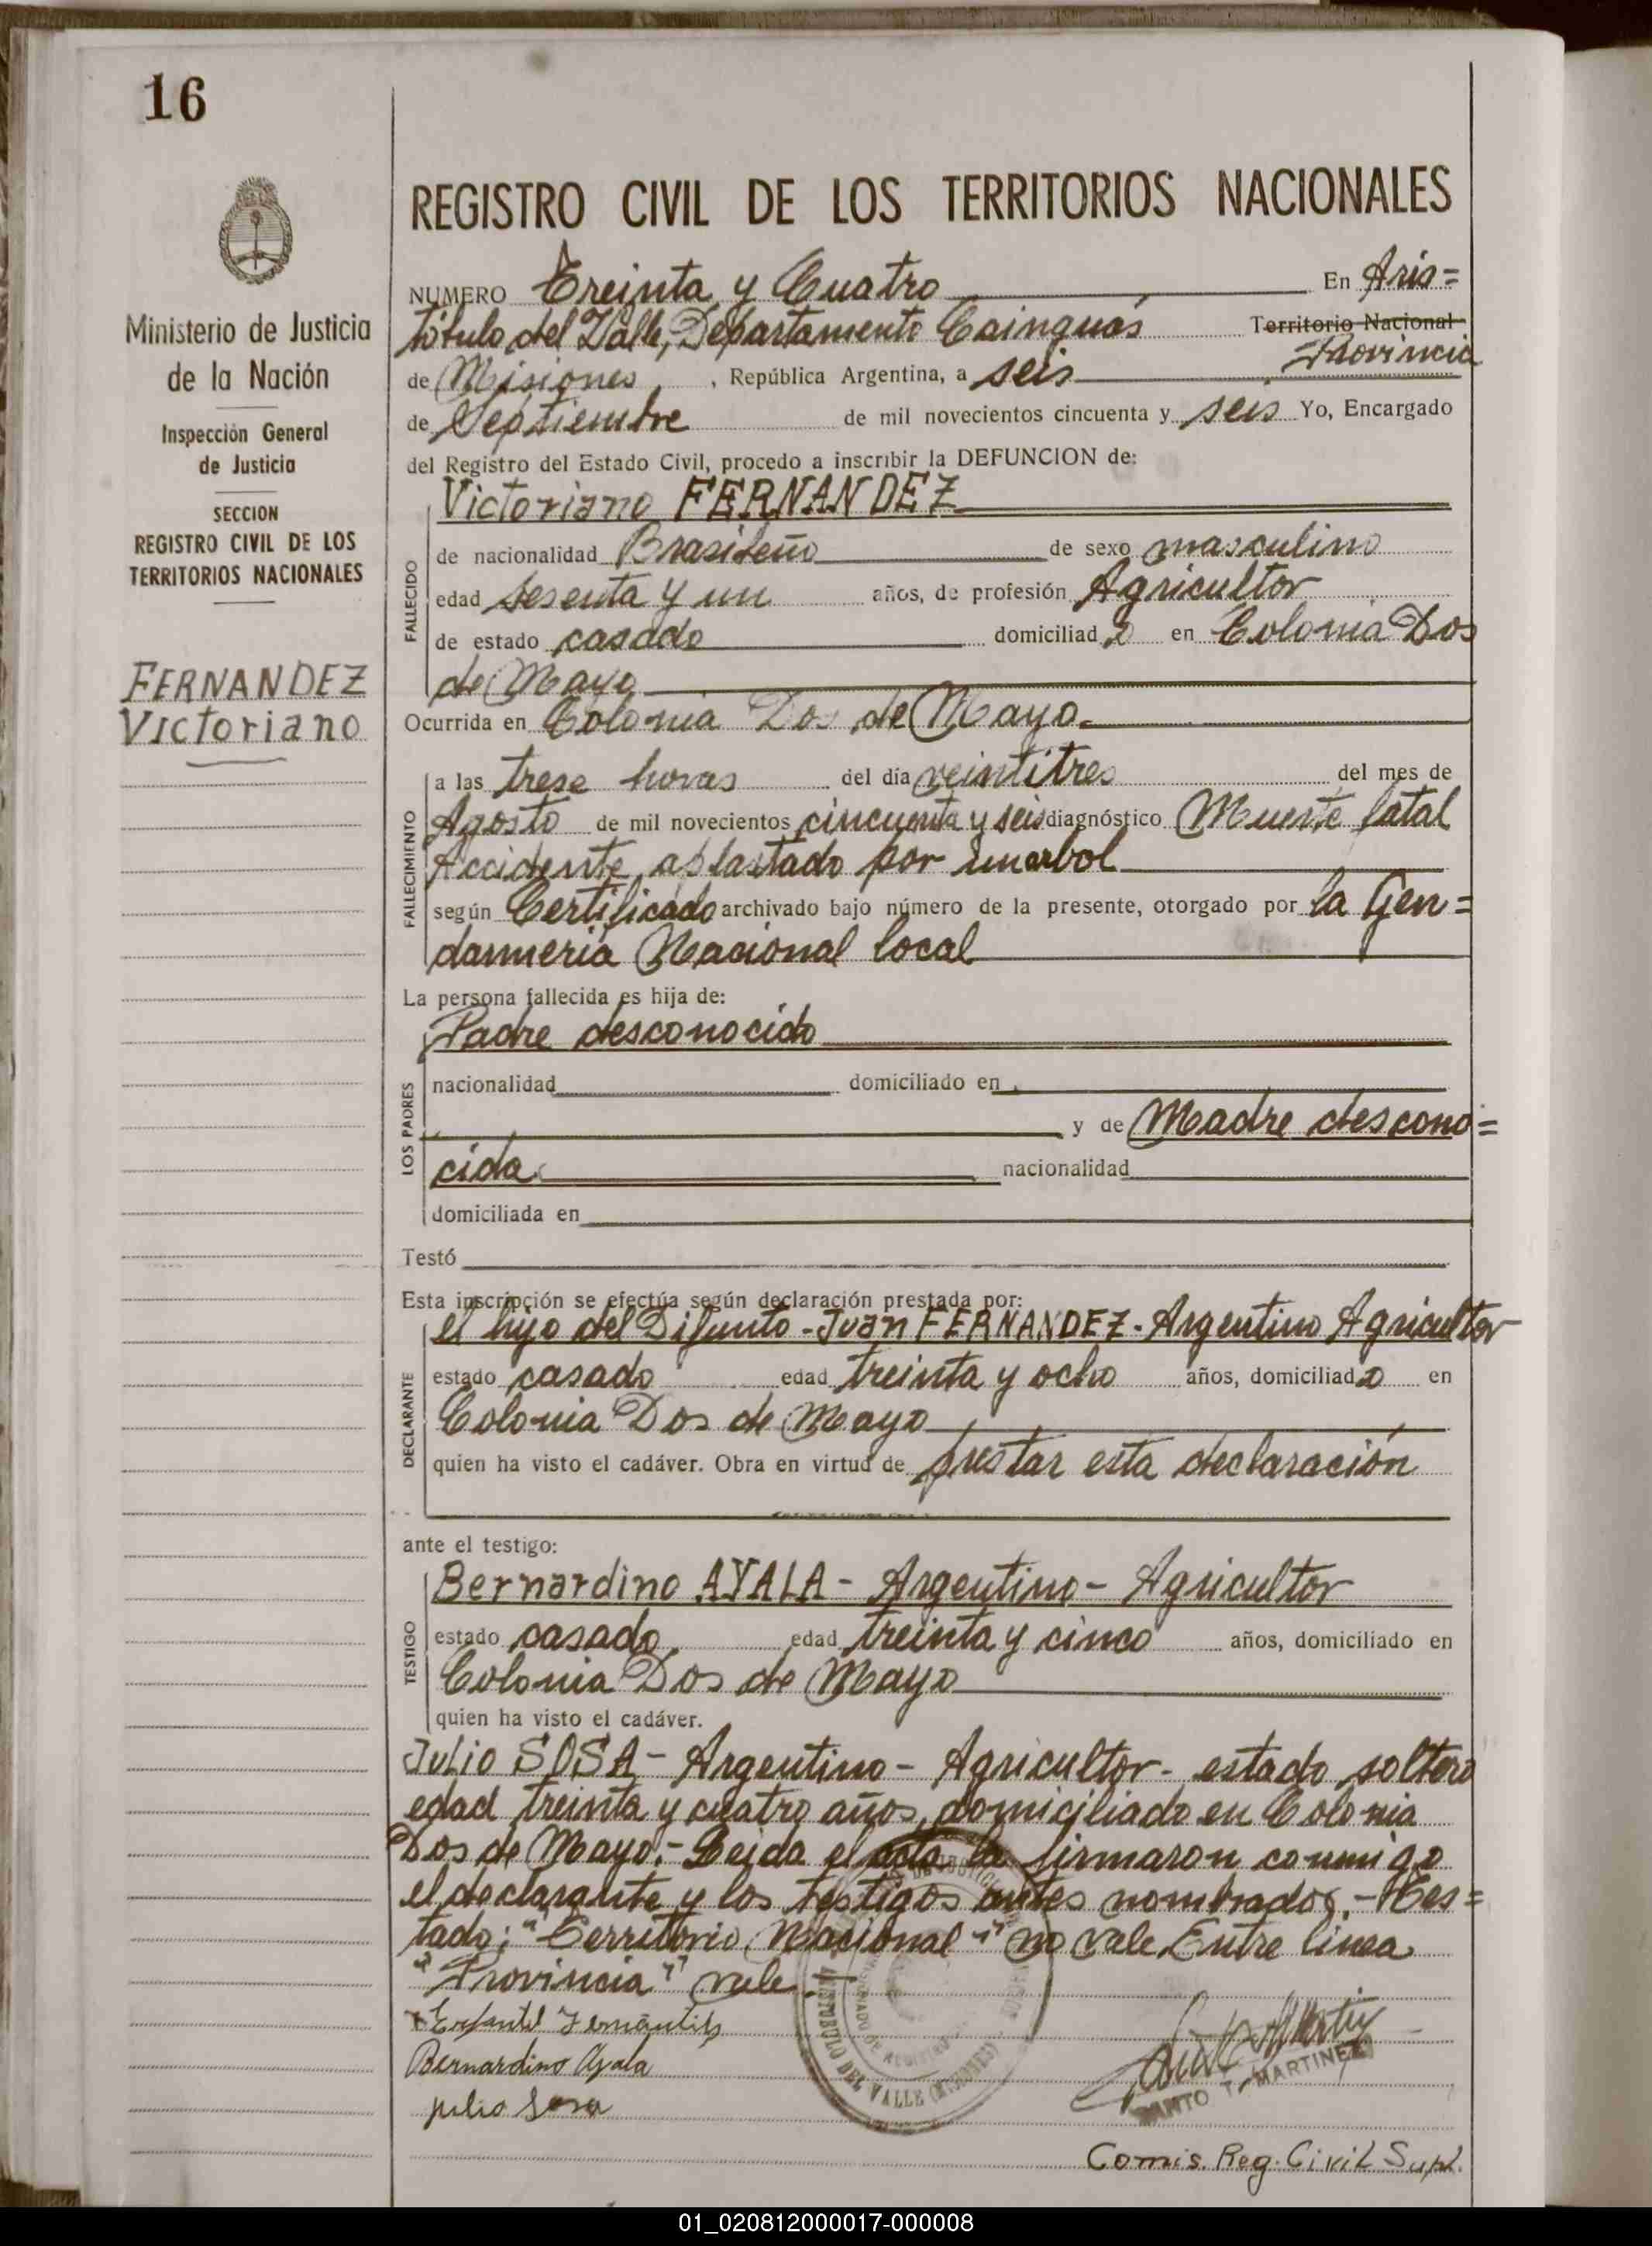 16
Ministerio de Justicia
de la Nación
Inspección General
de Justicia
SECCION
REGISTRO CIVIL DE LOS
TERRITORIOS NACIONALES
FERNANDEZ
Victoriano
REGISTRO CIVIL DE LOS TERRITORIOS NACIONALES
NUMERO Treinta y Cuatro En Aris=
tóbulo del Valle, Departamento Cainguás Territorio Nacional
Provincia
de Misiones, República Argentina, a seis
de Septiembre de mil novecientos cincuenta y seis Yo, Encargado
del Registro del Estado Civil, procedo a inscribir la DEFUNCION de:
Victoriano FERNANDEZ
FALLECIDO
de nacionalidad Brasileño de sexo masculino
edad sesenta y un años, de profesión Agricultor
de estado casado domiciliado en Colonia Dos
de Mayo
Ocurrida en Colonia Dos de Mayo
FALLECIMIENTO
a las trese horas del día veintitres del mes de
Agosto de mil novecientos cincuenta y seis diagnóstico Muerte fatal
Accidente aplastado por un arbol
según Certificado archivado bajo número de la presente, otorgado por la Gen=
darmeria Nacional local
La persona fallecida es hija de:
Padre desconocido
LOS PADRES
nacionalidad domiciliado en
y de Madre descono=
cida nacionalidad
domiciliada en
Testó
Esta inscripción se efectúa según declaración prestada por:
el hijo del Difunto - Juan FERNANDEZ - Argentino Agricultor
DECLARANTE
estado casado edad treinta y ocho años, domiciliado en
Colonia Dos de Mayo
quien ha visto el cadáver. Obra en virtud de prestar esta declaración
ante el testigo:
Bernardino AYALA - Argentino - Agricultor
TESTIGO
estado casado edad treinta y cinco años, domiciliado en
Colonia Dos de Mayo
quien ha visto el cadáver.
Julio SOSA - Argentino - Agricultor - estado soltero
edad treinta y cuatro años, domiciliado en Colonia
Dos de Mayo.- Leida el acta la firmaron conmigo
el declarante y los testigos antes nombrados.- Tes=
tado: "Territorio Nacional" no vale Entre linea
"Provincia" vale.-
Bernardino Ayala
julio Sosa
ARISTOBULO DEL VALLE (MISIONES)
SANTO T. MARTINEZ
Comis. Reg. Civil Supl.
01_020812000017-000008